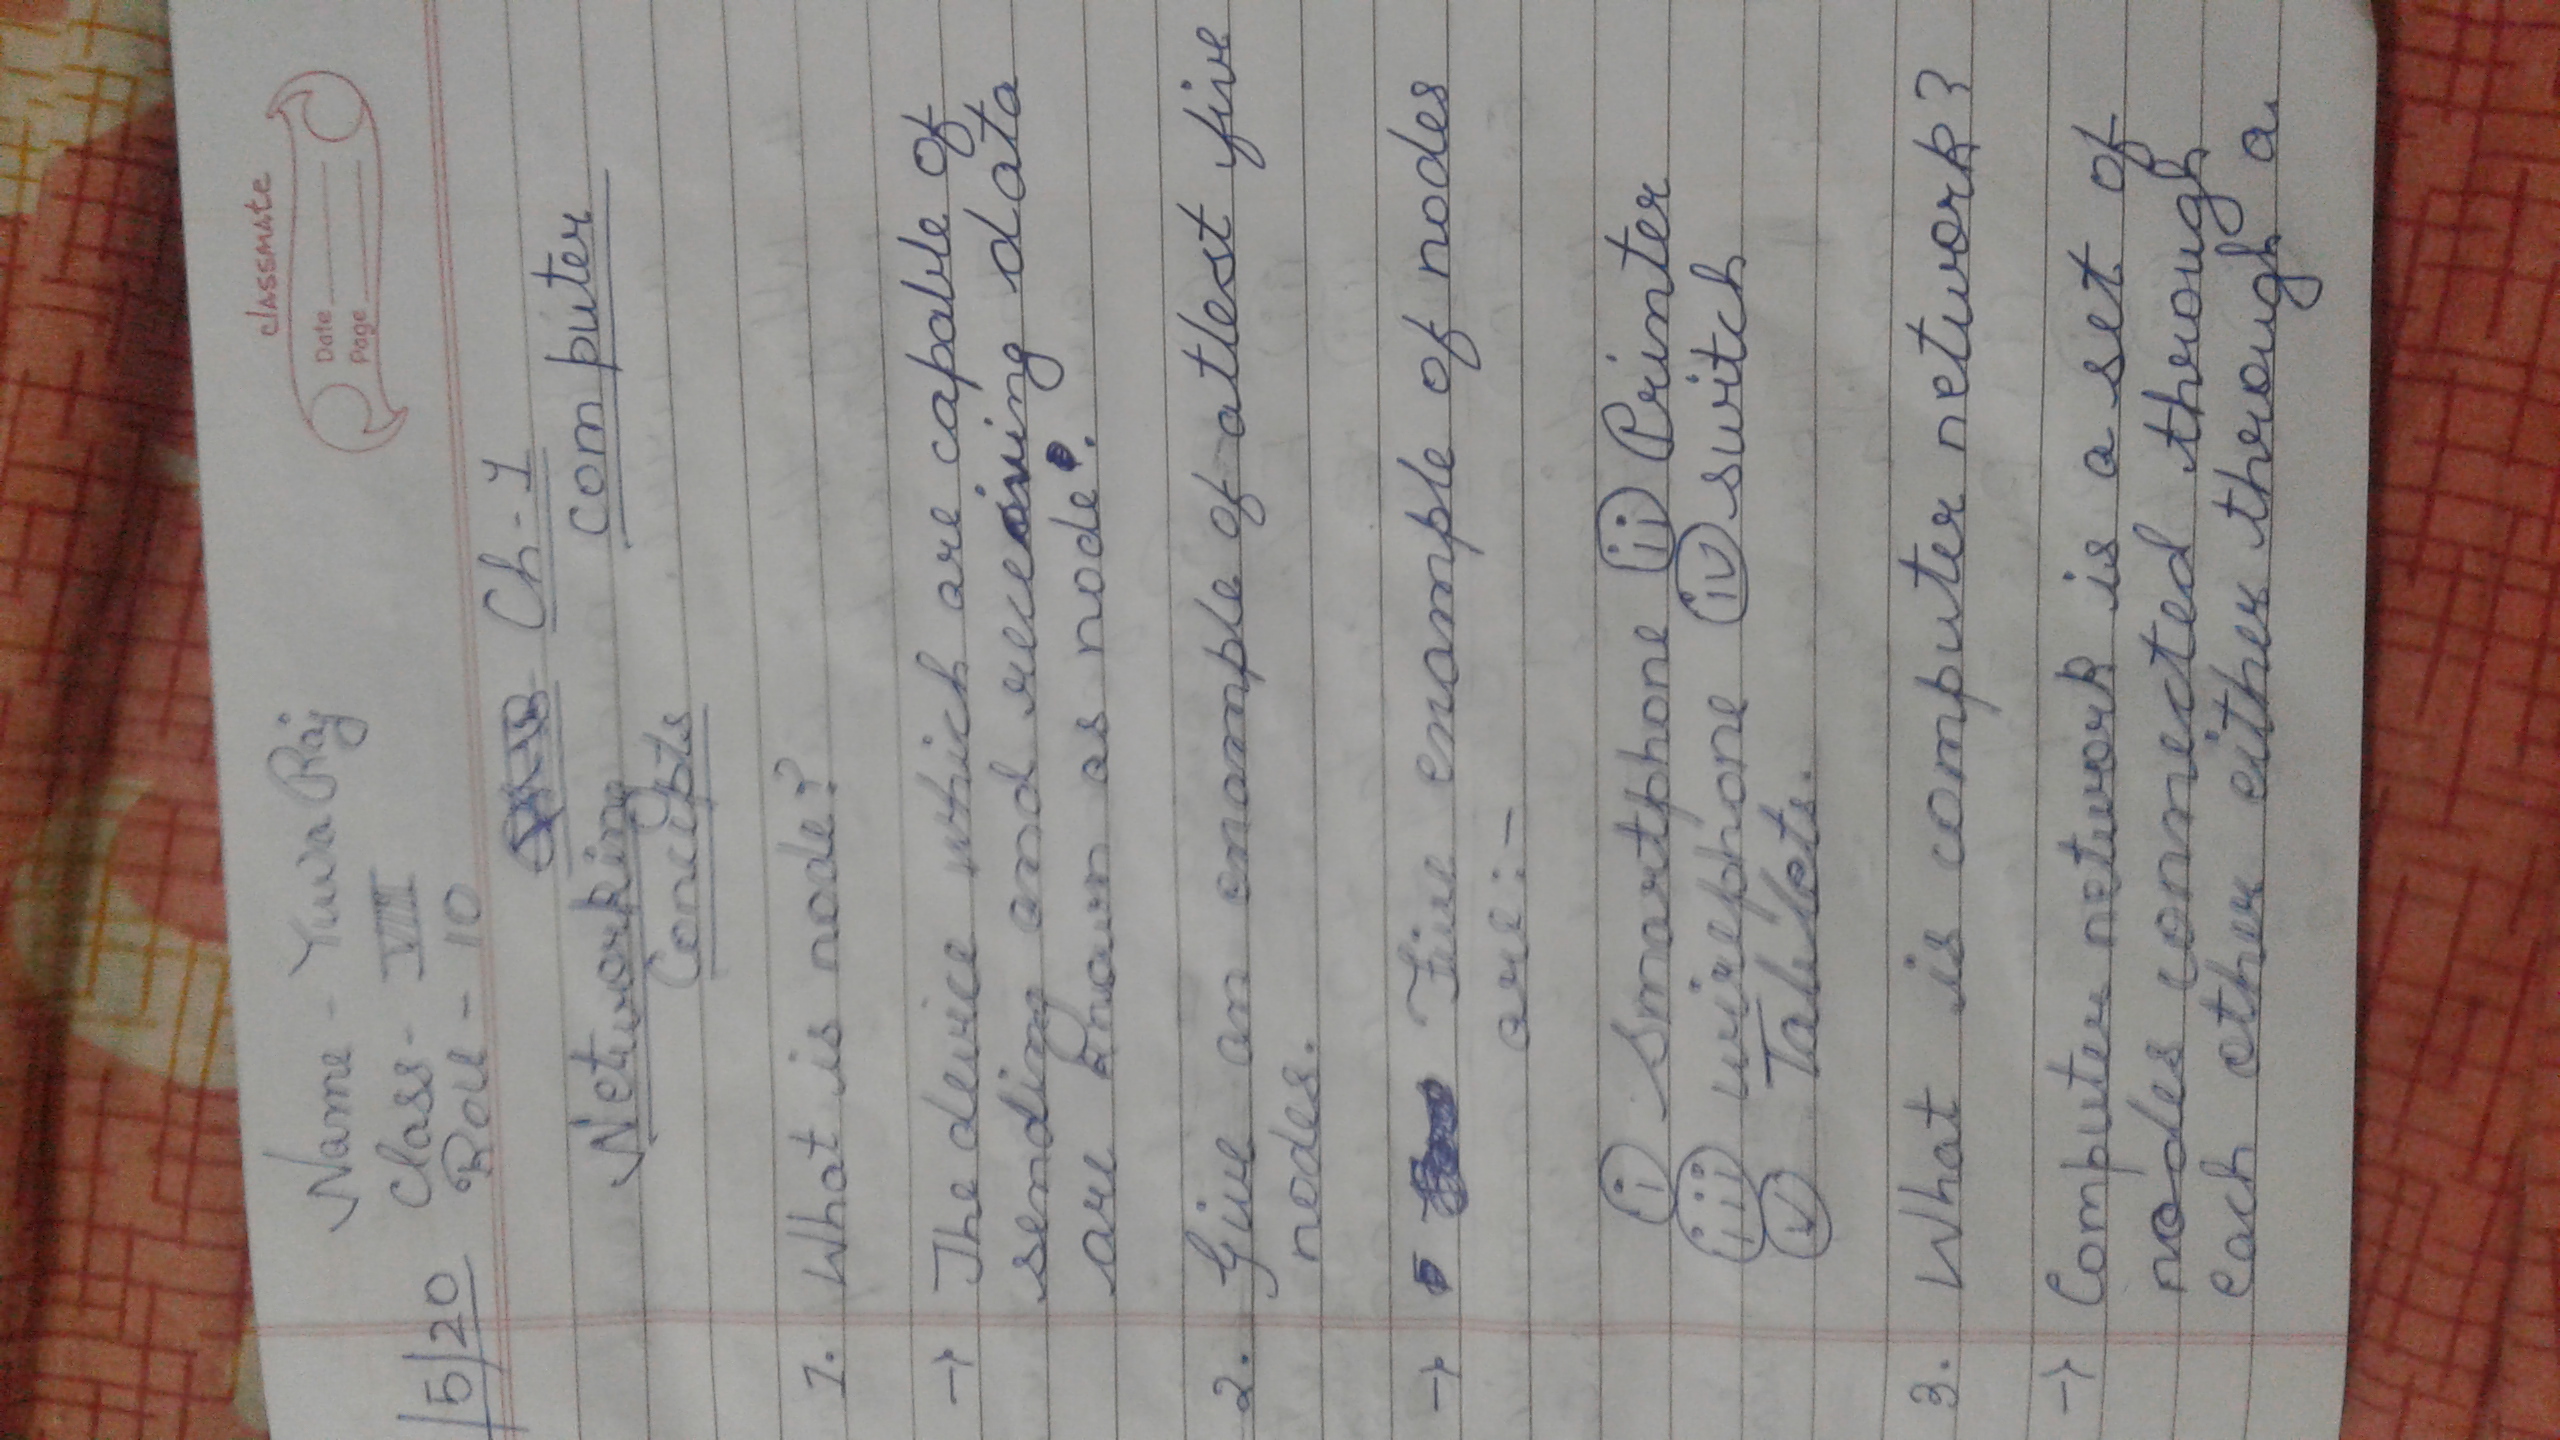 classmate
Date
Page
Name - Yuva Raj
Class - VIII
Roll - 10
/5/20
Ch-1
Computer
Networking
Concepts
1. What is node?
→ The device which are capable of
sending and receiving data
are known as node.
2. Give an enample of atlest five
nodes.
→ Five enample of nodes
are:-
(i) Smartphone (ii) Printer
(iii) wirephone (iv) switch
(v) Tablets.
3. What is computer network?
→ Computer network is a set of
nodes connected through
each other either through a